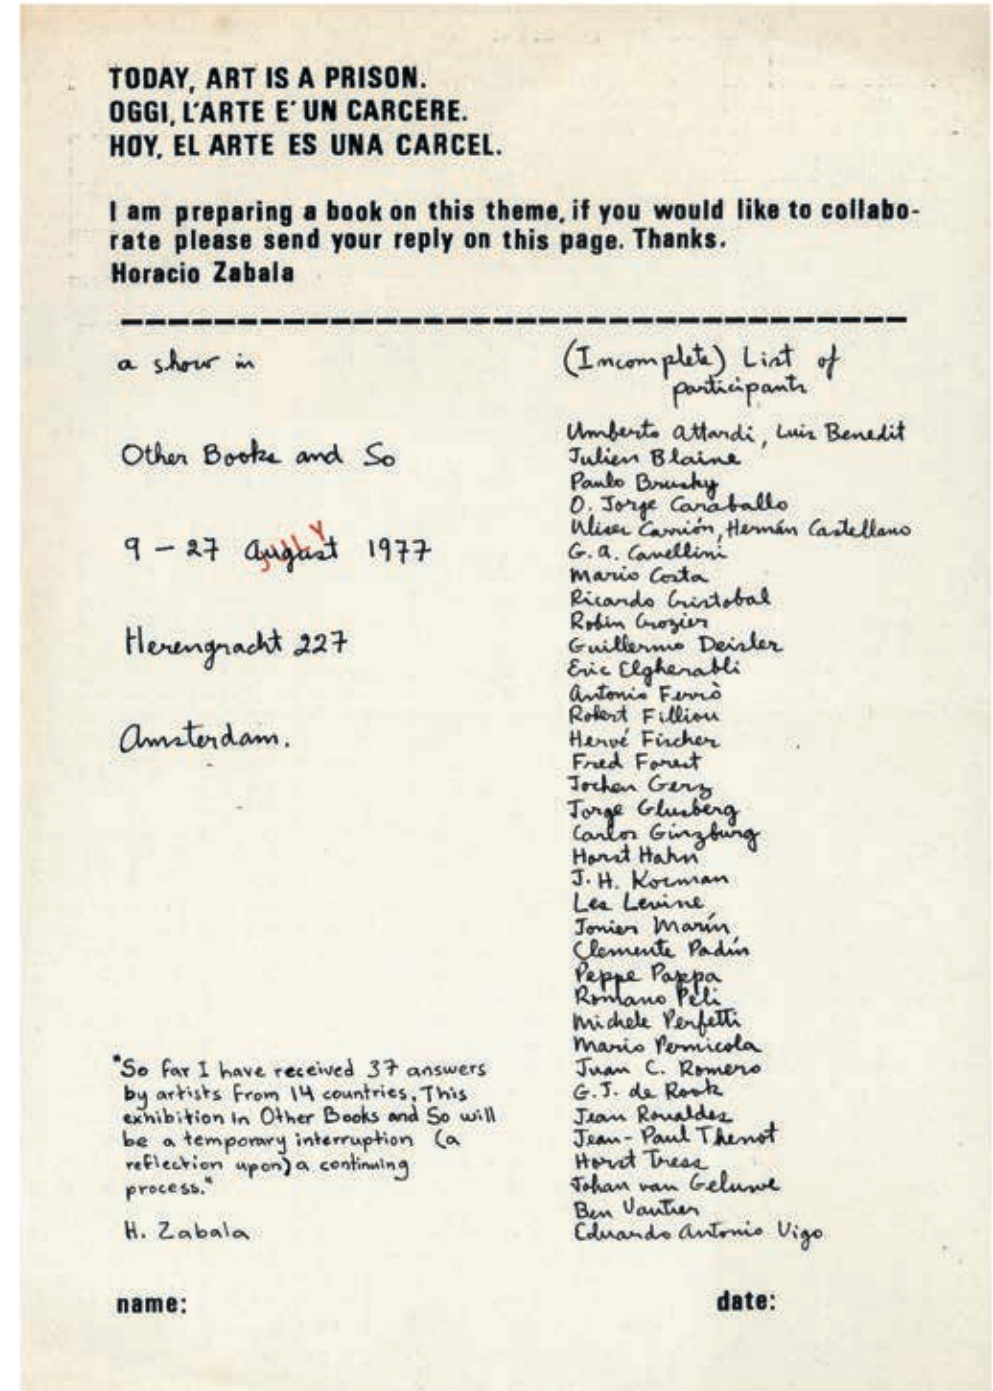 TODAY, ART IS A PRISON.
OGGI, L'ARTE E' UN CARCERE.
HOY, EL ARTE ES UNA CARCEL.
I am preparing a book on this theme, if you would like to collabo-
rate please send your reply on this page. Thanks.
Horacio Zabala
a show in
Other Books and So
9 – 27 August JULY 1977
Herengracht 227
Amsterdam.
"So far I have received 37 answers
by artists from 14 countries. This
exhibition in Other Books and So will
be a temporary interruption (a
reflection upon) a continuing
process."
H. Zabala
(Incomplete) List of
participants
Umberto Attardi, Luis Benedit
Julien Blaine
Paulo Brusky
O. Jorge Caraballo
Ulises Carrión, Hernán Castellano
G. A. Cavellini
Mario Costa
Ricardo Cristobal
Robin Crozier
Guillermo Deisler
Eric Elgherabli
Antonio Ferrò
Robert Filliou
Hervé Fischer
Fred Forest
Jochen Gerz
Jorge Glusberg
Carlos Ginzburg
Horst Hahn
J. H. Kocman
Les Levine
Jonier Marín
Clemente Padín
Peppe Pappa
Romano Peli
Michele Perfetti
Mario Perniola
Juan C. Romero
G. J. de Rook
Jean Roualdes
Jean-Paul Thenot
Horst Tress
Johan van Geluwe
Ben Vautier
Eduardo Antonio Vigo
name:
date: